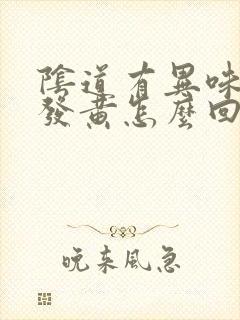 陰道有異味
發黃怎麼回
晚來風急